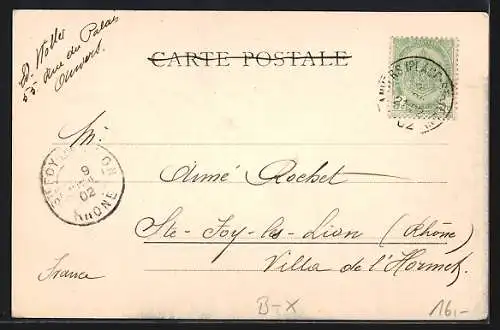 Ed. Wolles
55 Rue du Palais
Anvers.
CARTE POSTALE
ANVERS (PLACE
02
M:
Aimé Rochet
Ste-Foy-les-Lion (Rhône)
Villa de l'Hormet.
France
STE FOY LYON
9
02
RHONE
B-X
16,-